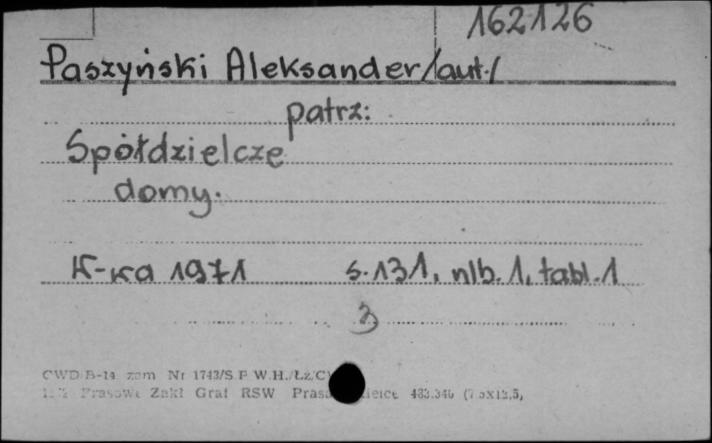 162126
Paszyński Aleksander/aut./
patrz:
Spółdzielcze
domy.
K-ka 1971 s.131, nlb.1, tabl.1
3
CWD B-14 zam Nr 1743/S P W.H./Łz/C
Prasowe Zakł Graf RSW Prasa 483.346